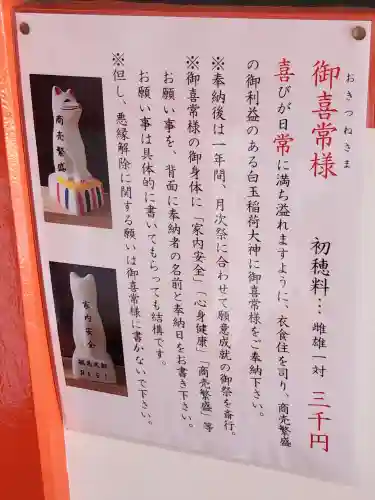 御喜常様
おきつねさま
初穂料…雌雄一対 三千円
喜びが日常に満ち溢れますように、衣食住を司り、商売繁盛
の御利益のある白玉稲荷大神に御喜常様をご奉納下さい。
※奉納後は一年間、月次祭に合わせて願意成就の御祭を斎行。
※御喜常様の御身体に「家内安全」「心身健康」「商売繁盛」等
お願い事を、背面に奉納者の名前と奉納日をお書き下さい。
お願い事は具体的に書いてもらっても結構です。
※但し、悪縁解除に関する願いは御喜常様に書かないで下さい。
商売繁盛
家内安全